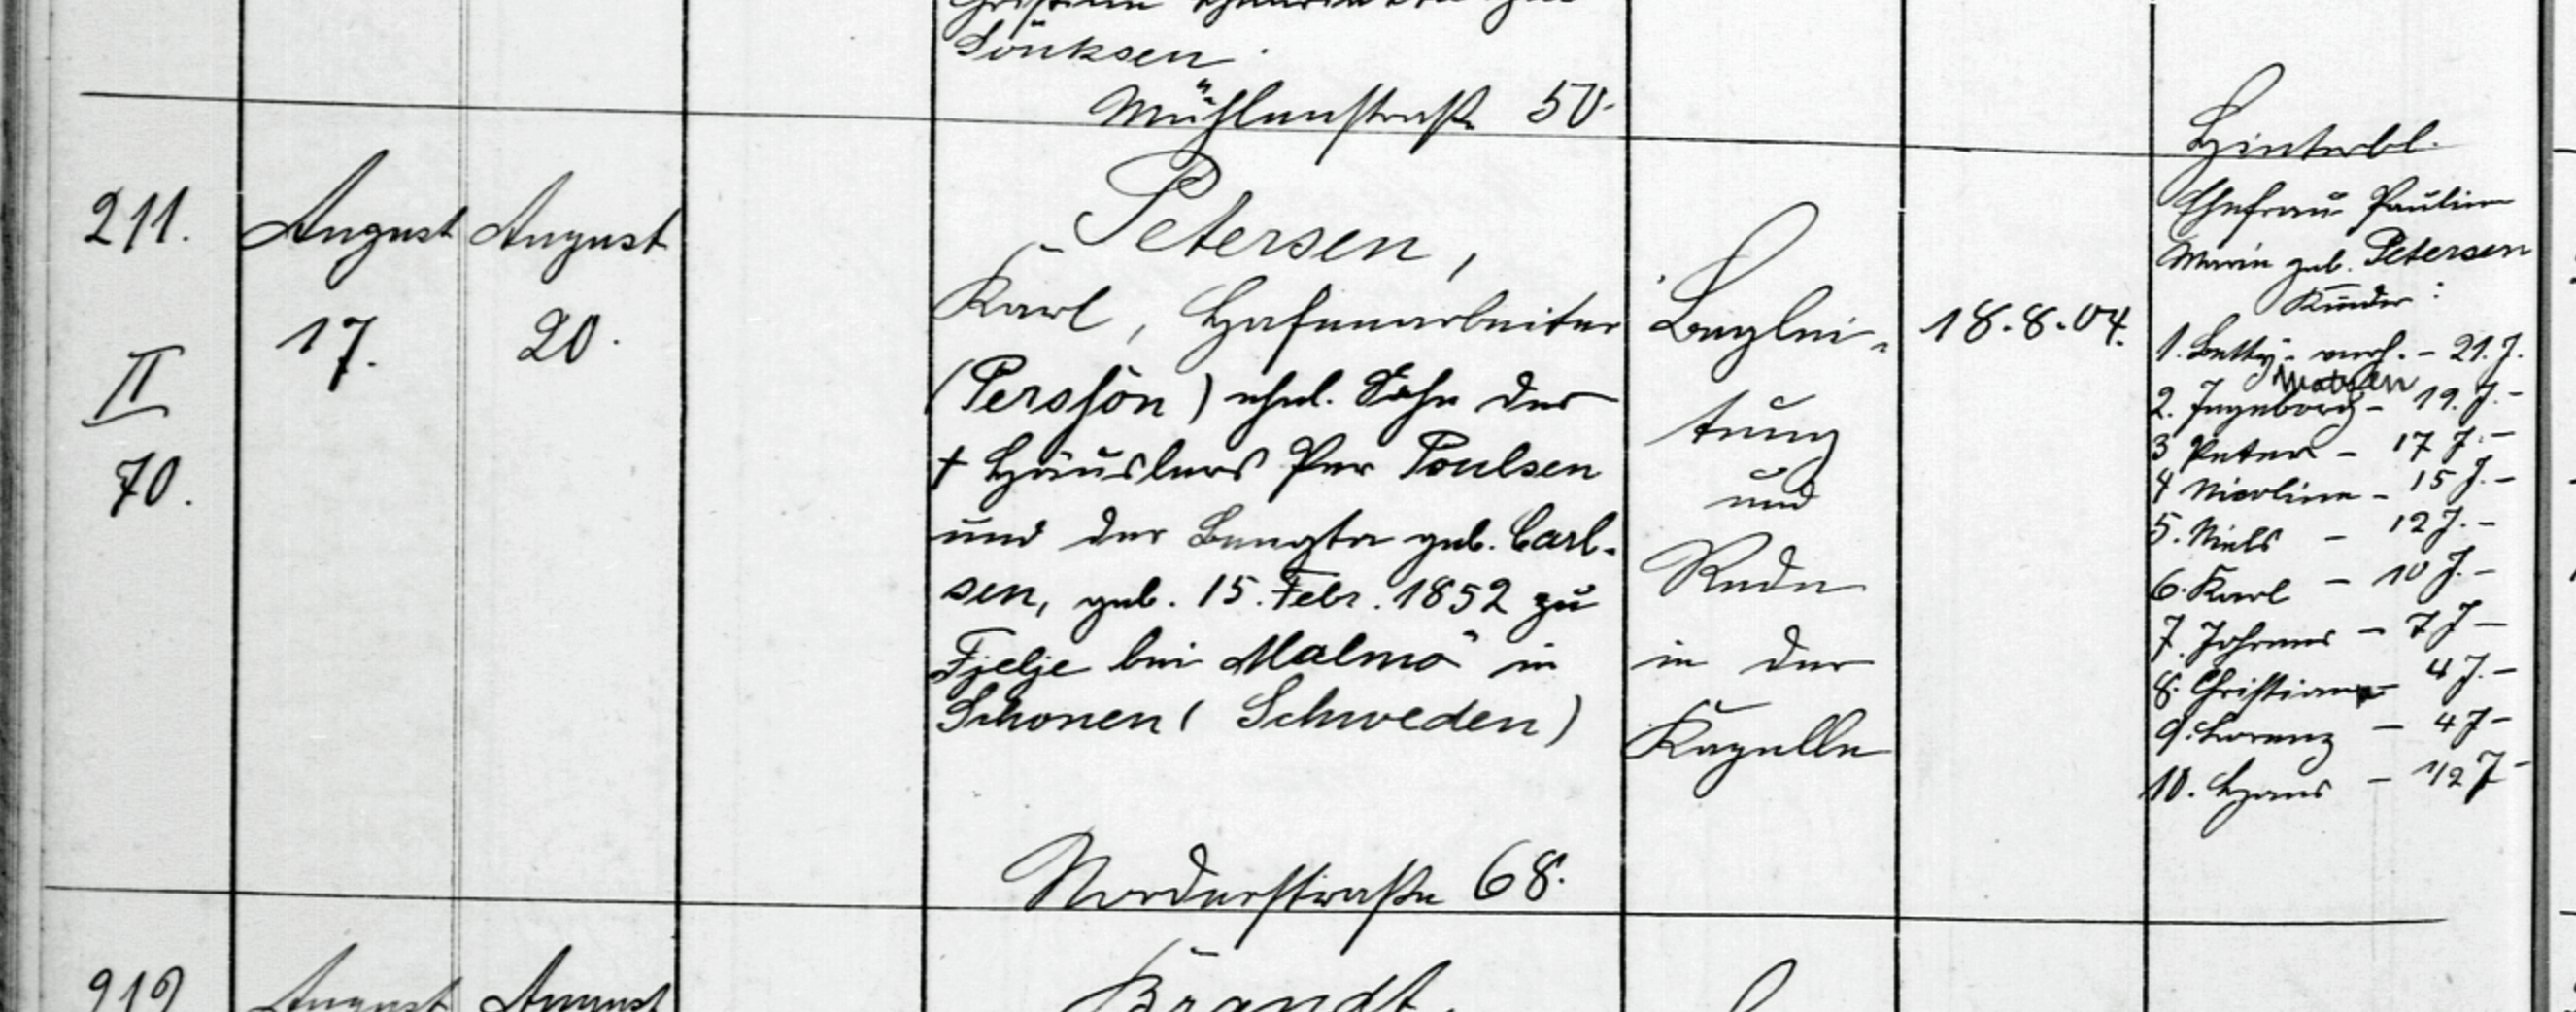 Sönksen.
Mühlenstraße 50.
211.
II
70.
August
17.
August
20.
Petersen,
Karl, Hafenarbeiter
(Persson) ehel. Sohn des
† Häuslers Per Poulsen
und der Bengta geb. Carl-
sen, geb. 15. Febr. 1852 zu
Fjelje bei Malmö in
Schonen (Schweden)
Norderstraße 68.
Beglei-
tung
und
Rede
in der
Kapelle
18.8.04.
Hinterbl.
Ehefrau Pauline
Marie geb. Petersen
Kinder:
1. Betty - verh. - 21. J.
2. Ingeborg - 19. J. -
3 Peter - 17 J. -
4 Nicoline - 15 J. -
5. Niels - 12 J. -
6. Karl - 10 J. -
7. Johannes - 7 J -
8. Christian - 4 J. -
9. Lorenz - 4 J -
10. Hans - 1/2 J -
212
August
August
Brandt,